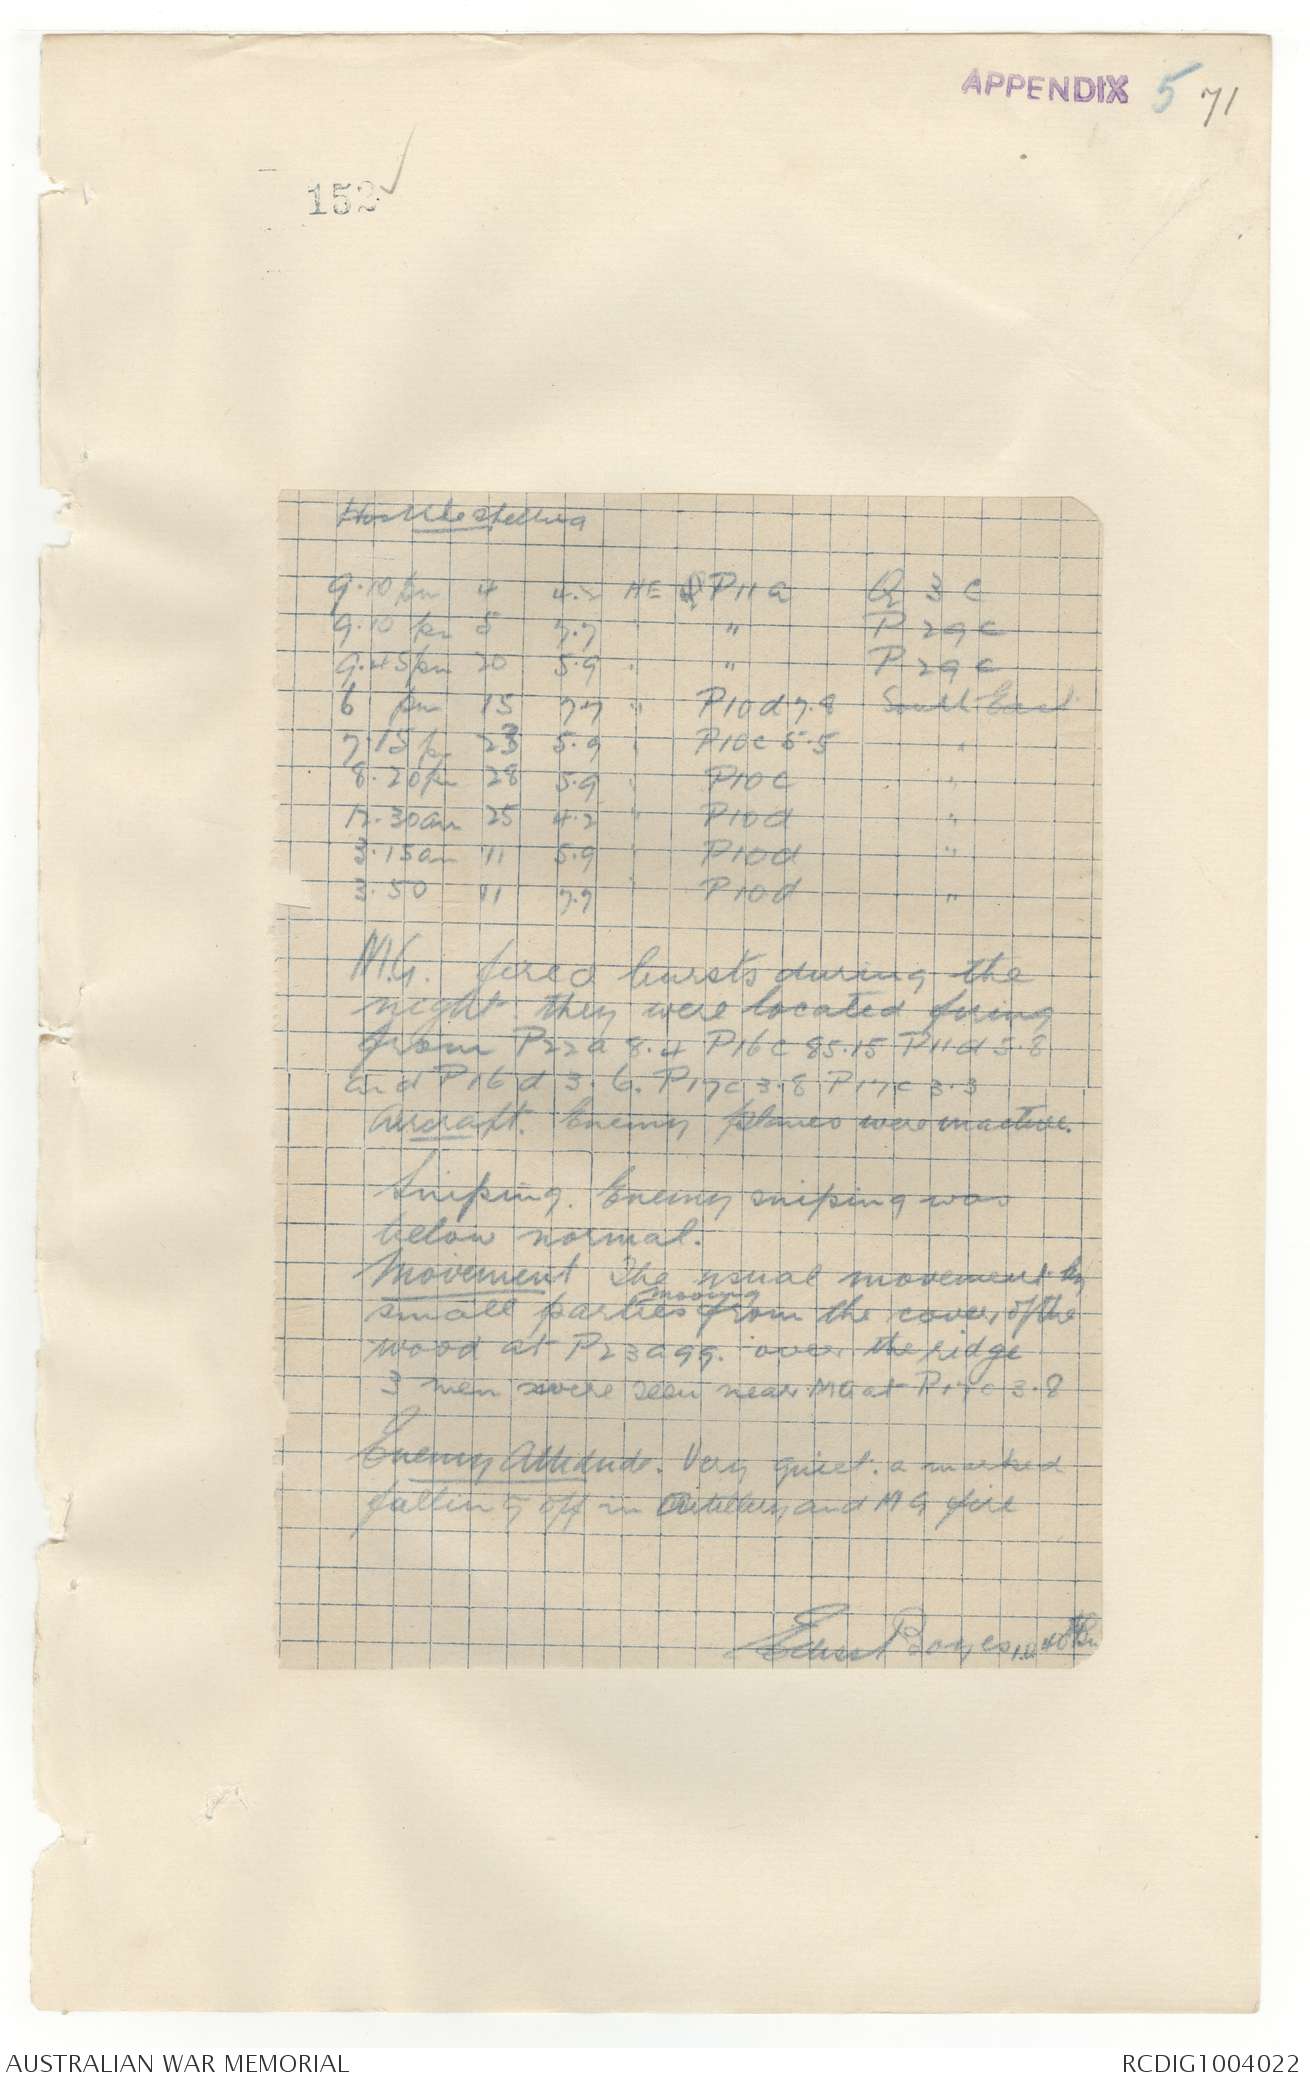 APPENDIX 5 71
152
Hostile Shelling
9.10 pm 4 4.2 HE P11a Q 3 C
9.10 pm 5 7.7 " " P 29 c
9.45 pm 20 5.9 " " P 29 c
6 pm 15 7.7 " P10d 7.8 South East
7.15 p 23 5.9 " P10c 5.5 "
8.20 pm 28 5.9 " P10c "
12.30 am 25 4.2 " P10d "
3.15 am 11 5.9 " P10d "
3.50 11 7.7 " P10d "
M.G. fired bursts during the
night they were located firing
from P22a 8.4 P16c 85.15 P11d 5.8
and P16d 3.6. P17c 3.8 P17c 3.3
Aircraft. Enemy planes were inactive.
Sniping. Enemy sniping was
below normal.
Movement The usual movement by
small parties moving from the cover of the
wood at P23a99. over the ridge
3 men were seen near MG at P17c 3.8
Enemy Attitude. Very quiet. a marked
falling off in Artillery and MG fire
Ernest Boyes, I.O 40th Bn
AUSTRALIAN WAR MEMORIAL
RCDIG1004022